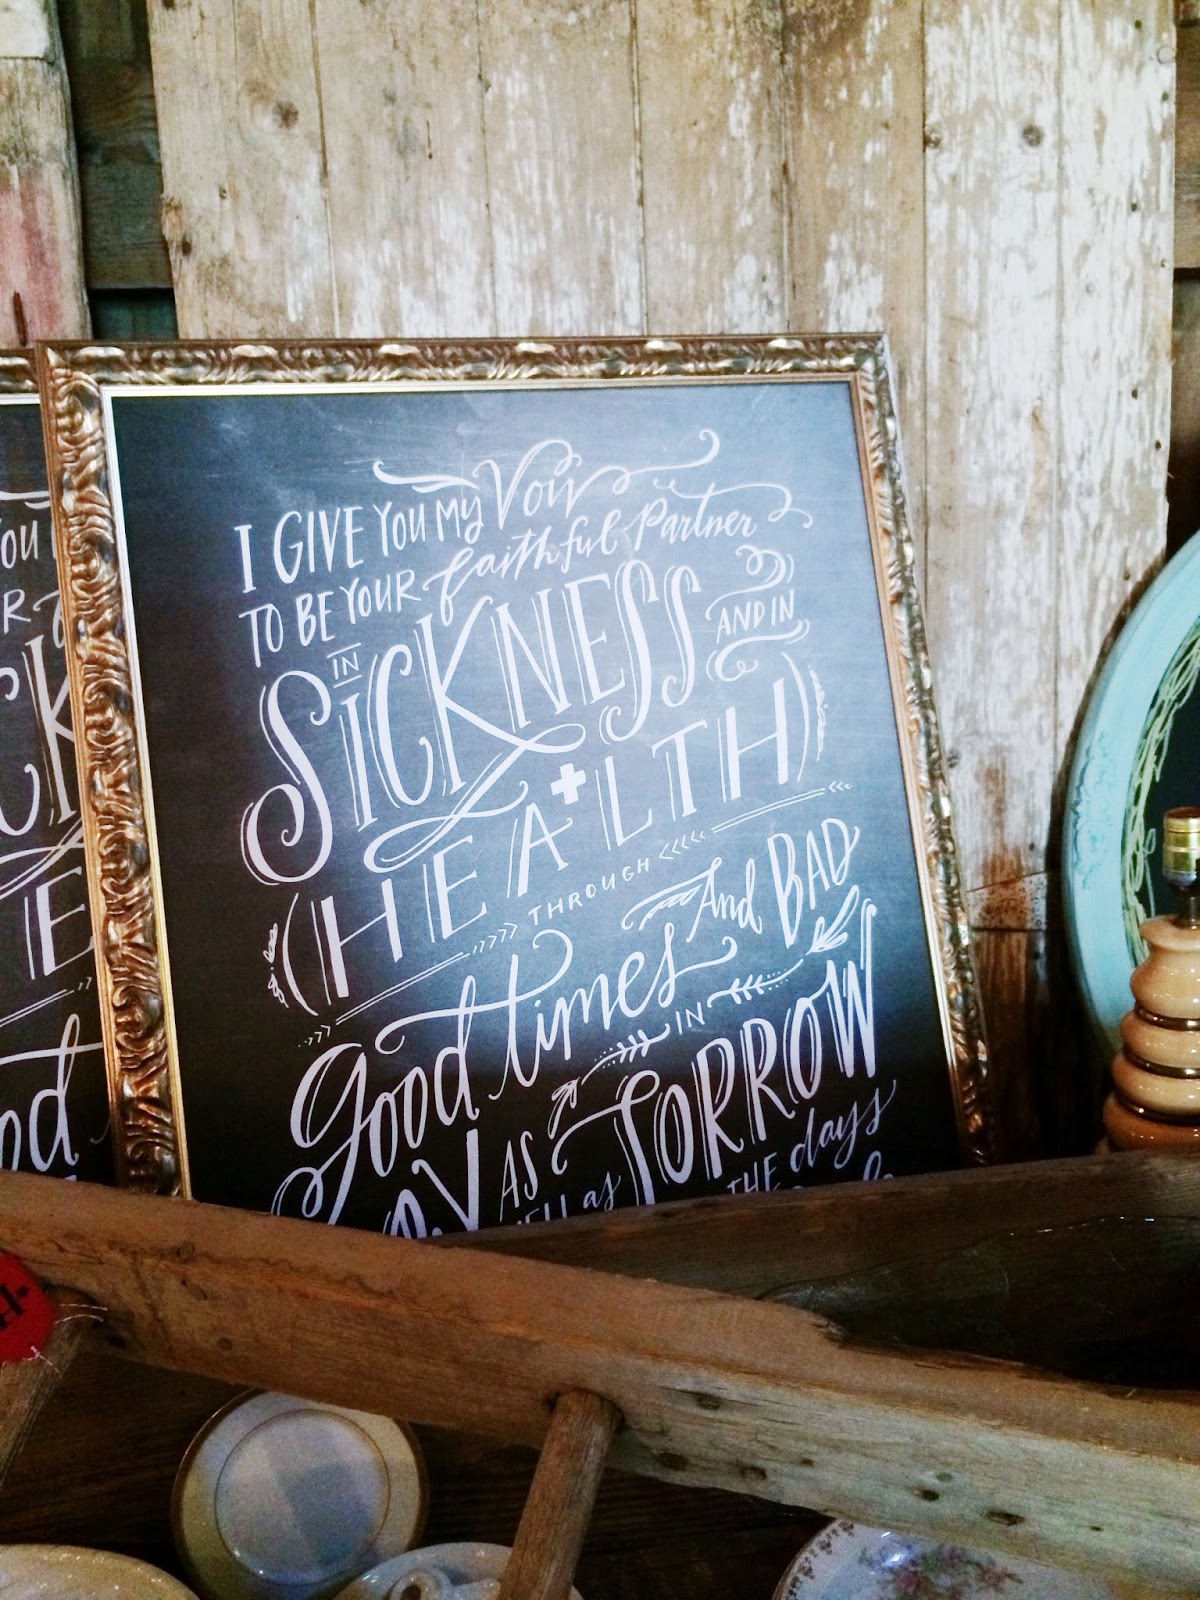 I GIVE YOU MY Vow
TO BE YOUR faithful Partner
IN SICKNESS AND IN
HEALTH
THROUGH
good times And BAD
IN
AS SORROW
THE days